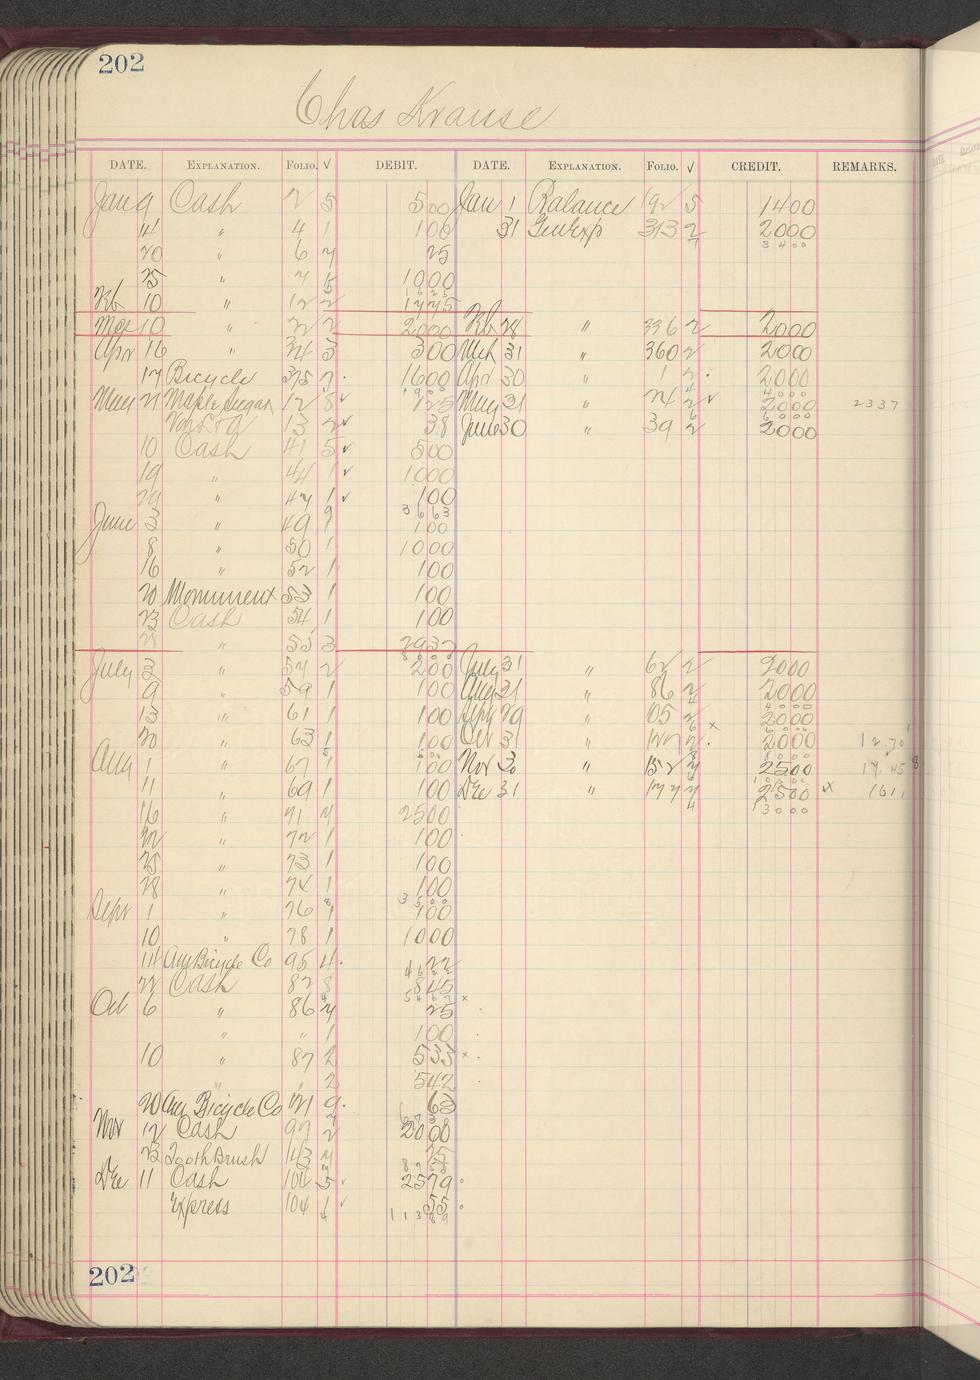 202
Chas Krause
DATE. EXPLANATION. FOLIO. √ DEBIT. DATE. EXPLANATION. FOLIO. √ CREDIT. REMARKS.
Jan 9 Cash 2 5 500 Jan 1 Balance 192 5 1400
14 " 4 1 100 31 GenExp 313 2 2000
3400
20 " 6 7 25
25 " 7 5 1000
1625
Feb 10 " 12 2 1775
Mar 10 " 22 2 2000 Feb 28 " 336 2 2000
Apr 16 " 34 3 300 Mch 31 " 360 2 2000
17 Bicycle 375 7 1600 Apr 30 " 1 2 2000
1900 4000
May 21 Maple Sugar 12 8 √ 125 May 31 " 24 2 √ 2000 2337
6000
13 2 √ 38 June 30 " 39 2 2000
10 Cash 41 5 √ 500
19 " 44 1 √ 1000
29 " 47 1 √ 100
3663
June 3 " 49 1 100
8 " 50 1 1000
16 " 52 1 100
20 Monument 53 1 100
23 Cash 54 1 100
" 55 3 2937
July 3 " 57 2 200 July 31 " 62 2 2000
9 " 59 1 100 Aug 31 " 86 2 2000
4000
13 " 61 1 100 Sept 29 " 105 2 x 2000
6000
20 " 63 1 100 Oct 31 " 127 2 2000 12.70
500 8000
Aug 1 " 67 1 100 Nov 30 " 152 7 2500 17.45
11 " 69 1 100 Dec 31 " 177 7 2500 x 1611
13000
16 " 71 7 2500
22 " 72 1 100
25 " 73 1 100
28 " 74 1 100
3500
Sept 1 " 76 1 100
10 " 78 1 1000
14 Am Bicycle Co 95 4 22
4622
22 Cash 82 8 845
5467 x
Oct 6 " 86 7 25
" " 1 100
10 " 87 2 533 x
" " 2 542
20 Am Bicycle Co 121 9 62
Nov 12 Cash 97 2 2000
23 Tooth Brush 143 7 25
Dec 11 Cash 104 5 √ 2579
Express 104 1 √ 55
11389
202